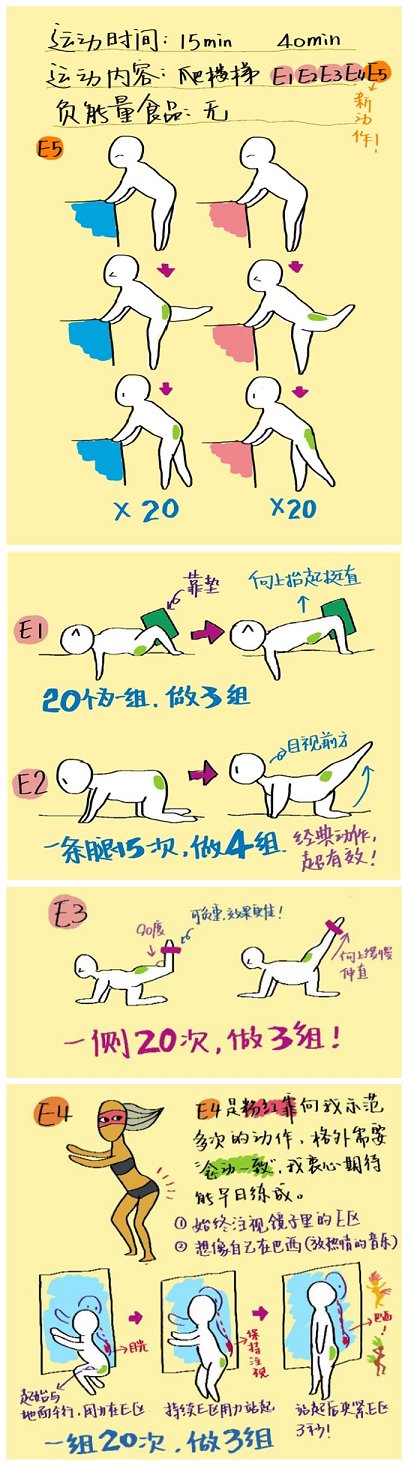 运动时间：15min 40min
运动内容：爬楼梯 E1E2E3E4E5
负能量食品：无
新动作！
E5
X 20
X20
靠垫
向上抬起挺直
E1
20个为一组，做3组
目视前方
E2
一条腿15次，做4组.
经典动作，
超有效！
E3
90度
可负重，效果更佳！
向上缓慢
伸直
一侧20次，做3组！
E4
E4是粉红靠向我示范
多次的动作，格外需要
“念动一致”，我衷心期待
能早日练成。
① 始终注视镜子里的E区
② 想像自己在巴西(放热情的音乐)
目光
保持注视
巴西！
起始与
地面平行，用力在E区
持续E区用力站起
站起后夹紧E区
3秒！
一组20次，做3组